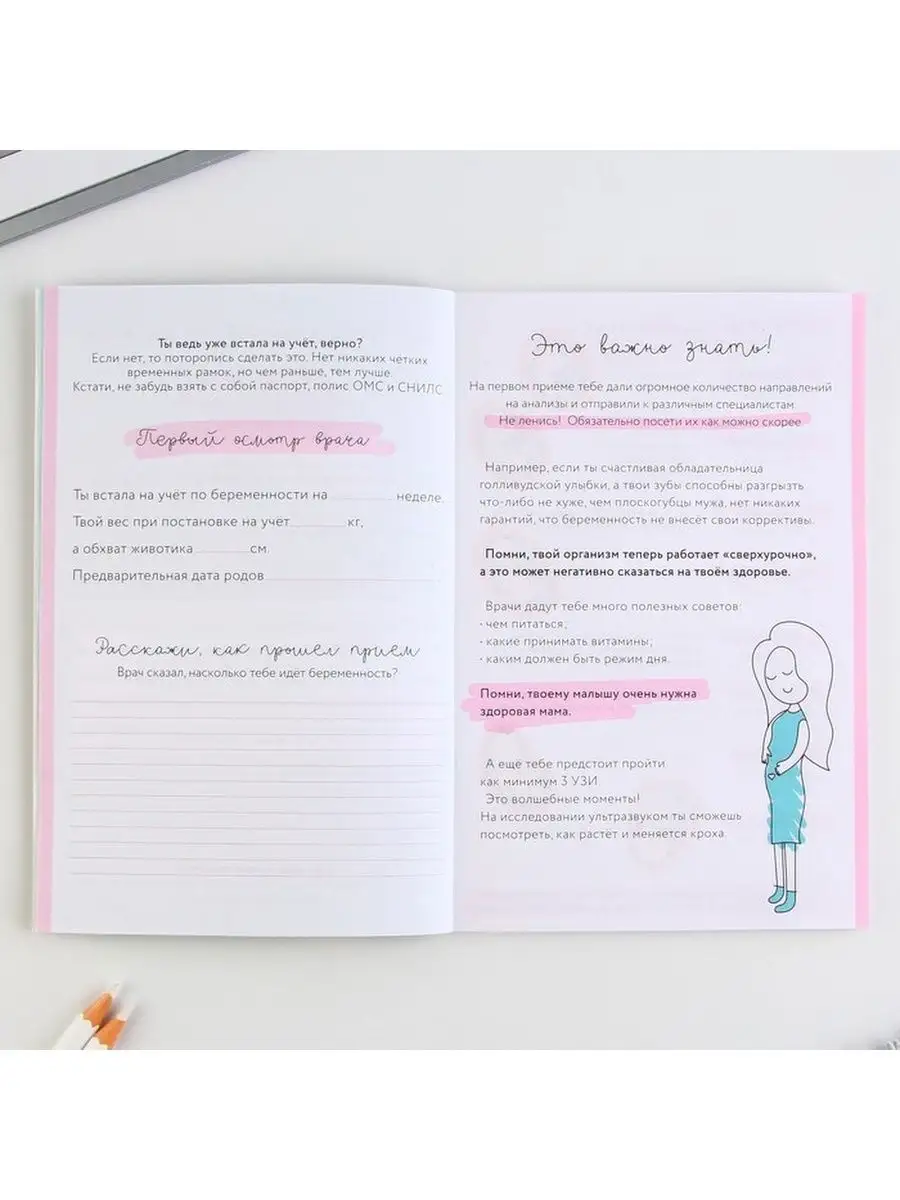 Ты ведь уже встала на учёт, верно?
Если нет, то поторопись сделать это. Нет никаких четких
временных рамок, но чем раньше, тем лучше.
Кстати, не забудь взять с собой паспорт, полис ОМС и СНИЛС.
Первый осмотр врача
Ты встала на учёт по беременности на ________ неделе.
Твой вес при постановке на учёт ________ кг,
а обхват животика ________ см.
Предварительная дата родов ________
Расскажи, как прошел прием
Врач сказал, насколько тебе идёт беременность?
Это важно знать!
На первом приеме тебе дали огромное количество направлений
на анализы и отправили к различным специалистам.
Не ленись! Обязательно посети их как можно скорее
Например, если ты счастливая обладательница
голливудской улыбки, а твои зубы способны разгрызть
что-либо не хуже, чем плоскогубцы мужа, нет никаких
гарантий, что беременность не внесёт свои коррективы.
Помни, твой организм теперь работает «сверхурочно»,
а это может негативно сказаться на твоём здоровье.
Врачи дадут тебе много полезных советов:
• чем питаться;
• какие принимать витамины;
• каким должен быть режим дня.
Помни, твоему малышу очень нужна
здоровая мама.
А ещё тебе предстоит пройти
как минимум 3 УЗИ
Это волшебные моменты!
На исследовании ультразвуком ты сможешь
посмотреть, как растёт и меняется кроха.